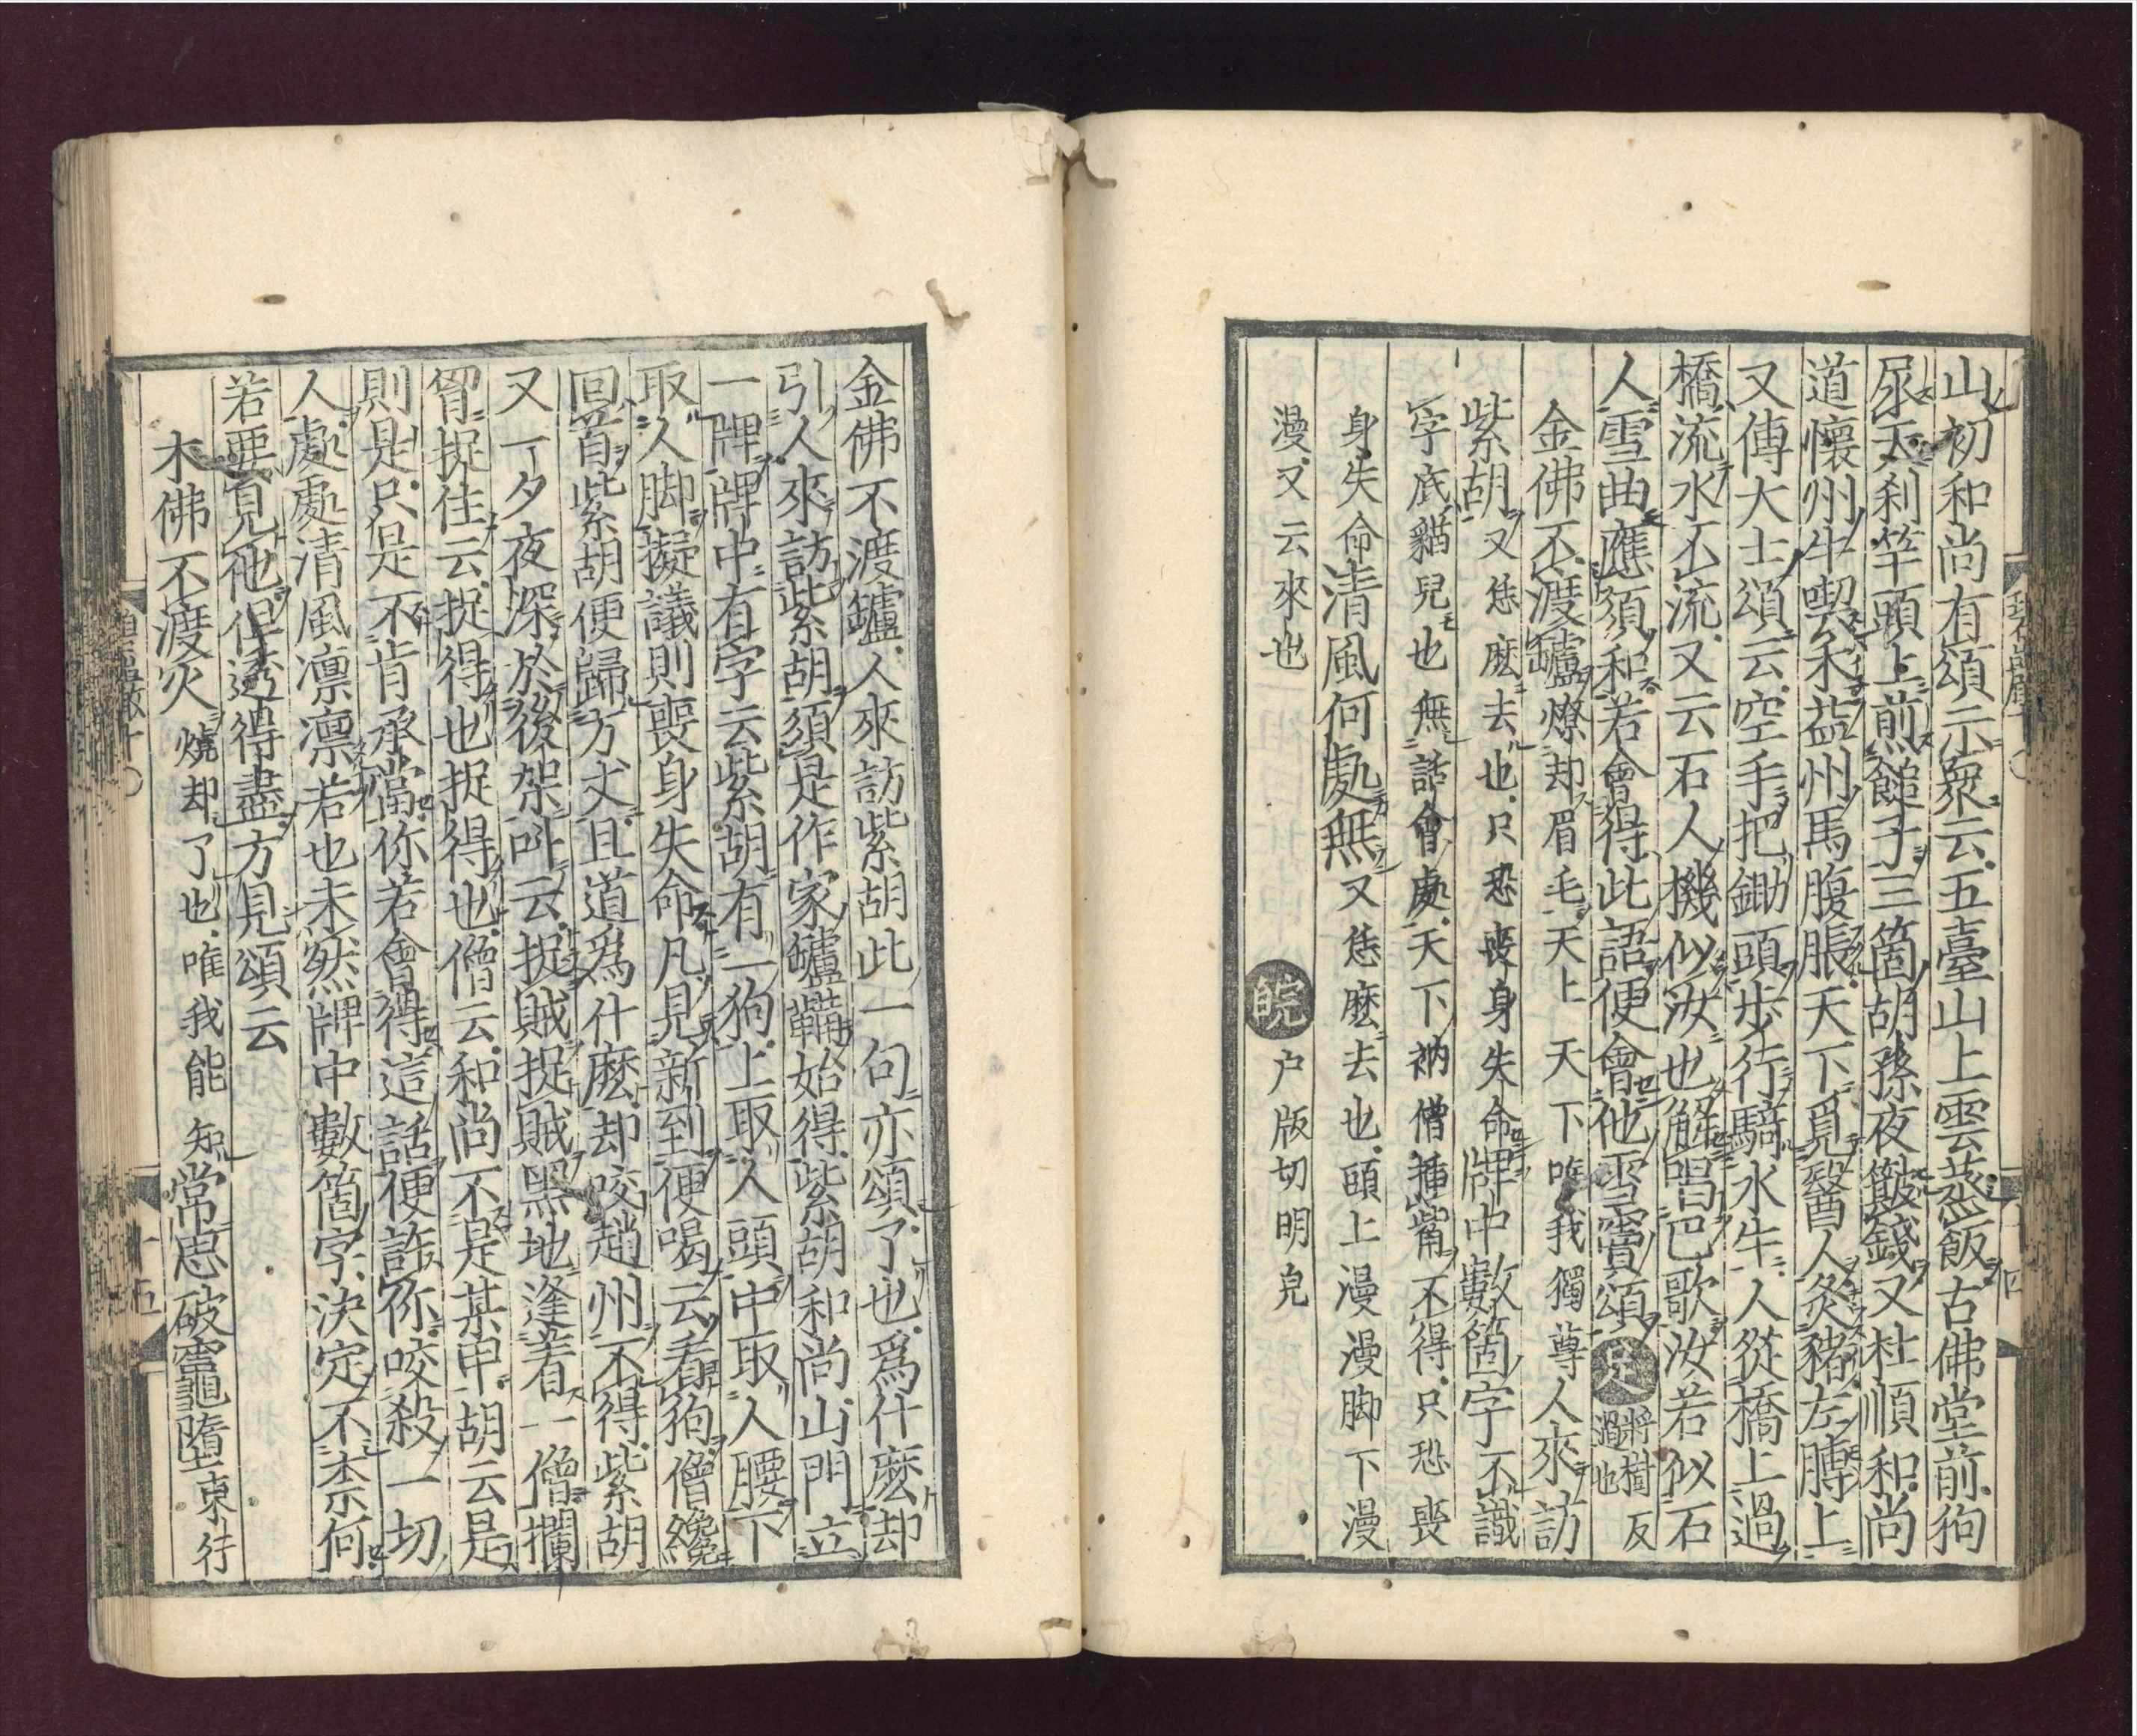 山初和尚有頌示衆云五臺山上雲蒸飯古佛堂前狗
尿天刹竿頭上煎𩜀子三箇胡孫夜簸錢又杜順和尚
道懷州牛喫禾益州馬腹脹天下覓醫人灸豬左膊上
又傅大士頌云空手把鋤頭步行騎水牛人從橋上過
橋流水不流又云石人機似汝也解唱巴歌汝若似石
人雪曲應須和若會得此語便會他雪竇頌
足
將樹
過也
反
金佛不渡鑪燎却眉毛天上天下唯我獨尊人來訪
紫胡又恁麽去也只恐喪身失命牌中數箇字不識
字底貓兒也無話會處天下衲僧插觜不得只恐喪
身失命清風何處無又恁麽去也頭上漫漫脚下漫
漫又云來也
皖
户版切明皃
金佛不渡鑪人來訪紫胡此一句亦頌了也爲什麽却
引人來訪紫胡須是作家鑪鞴始得紫胡和尚山門立
一牌牌中有字云紫胡有一狗上取人頭中取人腰下
取人脚擬議則喪身失命凡見新到便喝云看狗僧纔
回首紫胡便歸方丈且道爲什麽却咬趙州不得紫胡
又一夕夜深於後架叫云捉賊捉賊黑地逢着一僧攔
胷捉住云捉得也捉得也僧云和尚不是某甲胡云是
則是只是不肯承當你若會得這話便許你咬殺一切
人處處清風凛凛若也未然牌中數箇字決定不柰何
若要見他但透得盡方見頌云
木佛不渡火燒却了也唯我能知常思破竈墮東行
十五